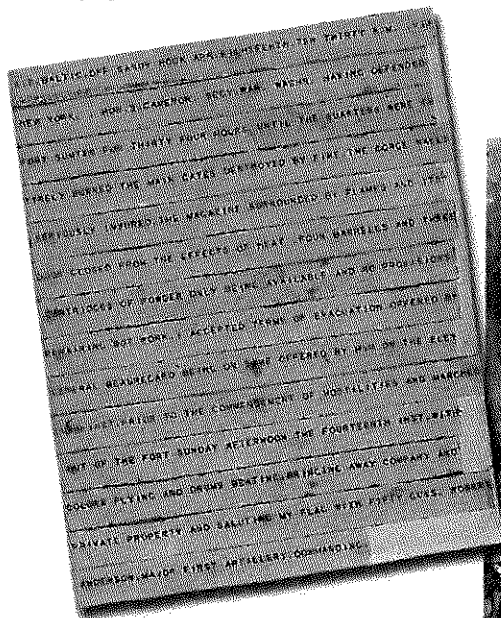 S.S. BALTIC. OFF SANDY HOOK APR. EIGHTEENTH. TEN THIRTY A.M. .VIA
NEW YORK. . HON. S. CAMERON. SECY. WAR. WASHN. HAVING DEFENDED
FORT SUMTER FOR THIRTY FOUR HOURS. UNTIL THE QUARTERS WERE EN
TIRELY BURNED THE MAIN GATES DESTROYED BY FIRE. THE GORGE WALLS
SERIOUSLY INJURED. THE MAGAZINE SURROUNDED BY FLAMES AND ITS
DOOR CLOSED FROM THE EFFECTS OF HEAT. FOUR BARRELLS AND THREE
CARTRIDGES OF POWDER ONLY BEING AVAILABLE AND NO PROVISIONS
REMAINING BUT PORK. I ACCEPTED TERMS OF EVACUATION OFFERED BY
GENERAL BEAUREGARD BEING ON SAME OFFERED BY HIM ON THE ELEV
ENTH INST. PRIOR TO THE COMMENCEMENT OF HOSTILITIES AND MARCHED
OUT OF THE FORT SUNDAY AFTERNOON THE FOURTEENTH INST. WITH
COLORS FLYING AND DRUMS BEATING. BRINGING AWAY COMPANY AND
PRIVATE PROPERTY AND SALUTING MY FLAG WITH FIFTY GUNS. ROBERT
ANDERSON. MAJOR FIRST ARTILLERY. COMMANDING.